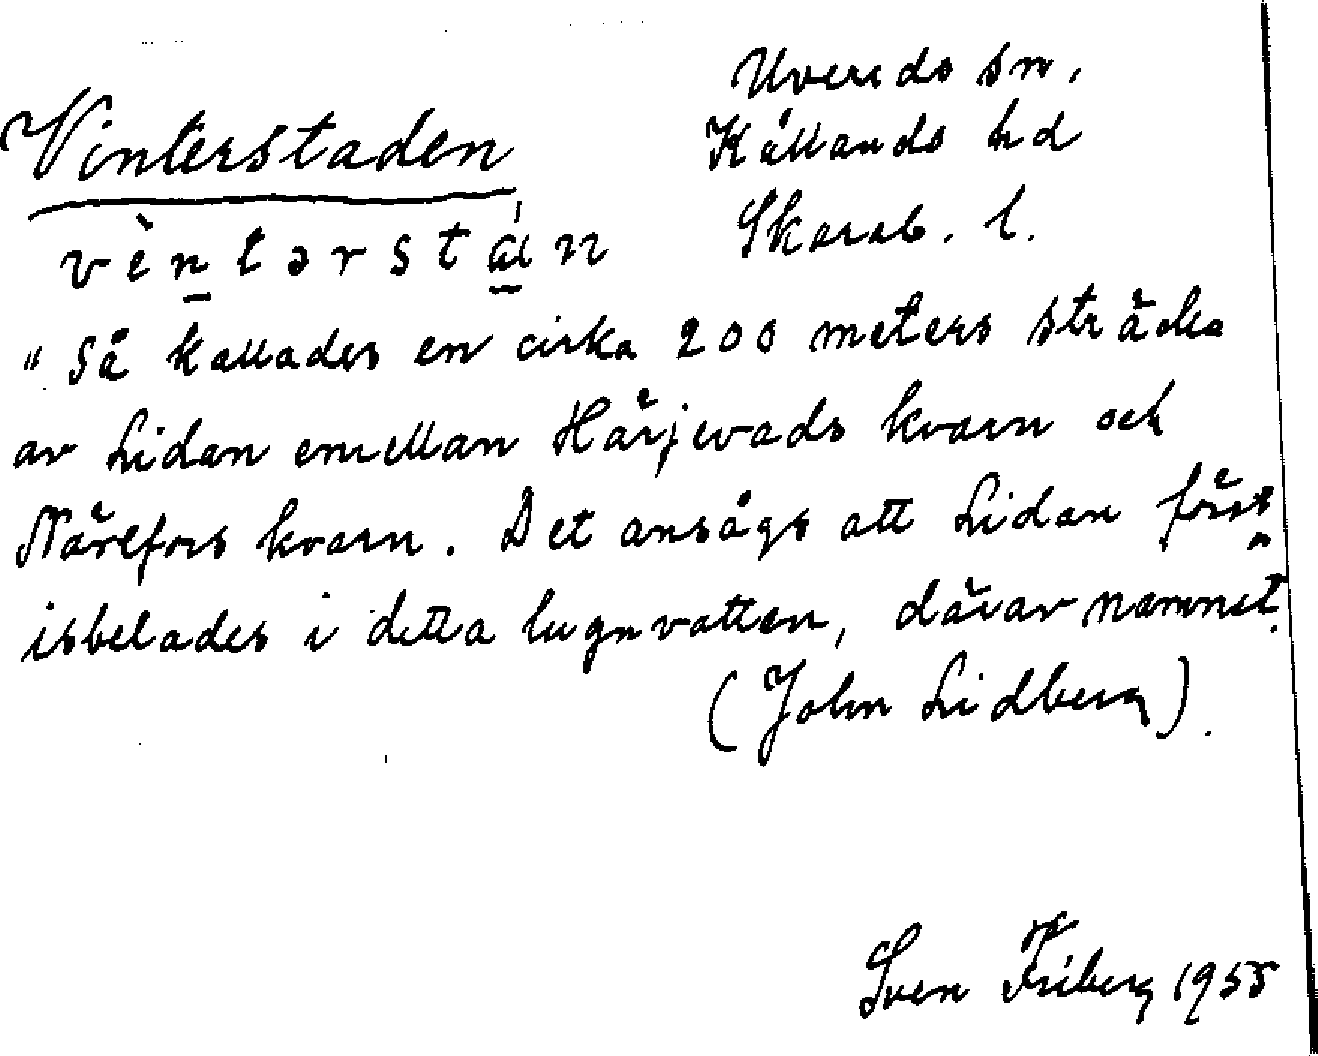 Vinterstaden
Uvereds sn,
Kållands hd
Skarab. l.
vèntərstán
"Så kallades en cirka 200 meters sträcka
av Lidan emellan Härjevads kvarn och
Närefors kvarn. Det ansågs att Lidan först
isbelades i detta lugnvatten, därav namnet.
(John Lidberg).
Sven Friberg 1955